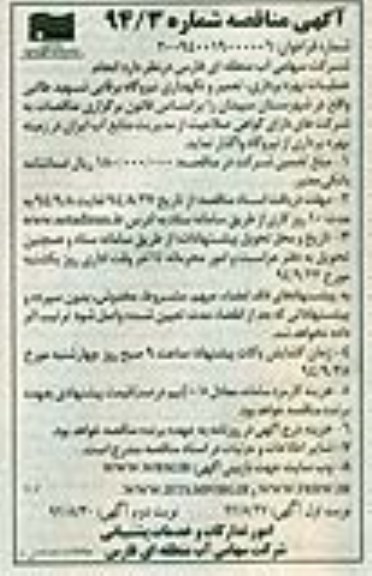 آگهی مناقصه شماره ۹۴/۳
شماره فراخوان:
شرکت سهامی آب منطقه ای فارس در نظر دارد انجام
عملیات بهره برداری، تعمیر و نگهداری نیروگاه برقابی شهید طالبی
واقع در شهرستان سپیدان را براساس قانون برگزاری مناقصات به
شرکت های دارای گواهی صلاحیت از مدیریت منابع آب ایران در زمینه
بهره برداری از نیروگاه واگذار نماید.
۱- مبلغ تضمین شرکت در مناقصه: ریال ضمانتنامه
بانکی معتبر
۲- مهلت دریافت اسناد مناقصه از تاریخ لغایت به
مدت ۱۰ روز کاری از طریق سامانه ستاد به آدرس www.setadiran.ir
۳- تاریخ و محل تحویل پیشنهادات: از طریق سامانه ستاد و همچنین
تحویل به دفتر حراست و امور محرمانه تا آخر وقت اداری روز یکشنبه
مورخ
به پیشنهادهای فاقد امضاء، مبهم، مشروط، مخدوش، بدون سپرده و
پیشنهاداتی که بعد از انقضاء مدت تعیین شده واصل شود ترتیب اثر
داده نخواهد شد.
۴- زمان گشایش پاکات پیشنهاد: ساعت ۹ صبح روز چهارشنبه مورخ
۵- هزینه کارمزد سامانه معادل قیمت پیشنهادی بعهده
برنده مناقصه خواهد بود.
۶- هزینه درج آگهی در روزنامه به عهده برنده مناقصه خواهد بود.
۷- سایر اطلاعات و جزئیات در اسناد مناقصه مندرج است.
۸- وب سایت جهت بازبینی آگهی: WWW.WRM.IR
WWW.FRRW.IR
نوبت اول آگهی: نوبت دوم آگهی:
امور تدارکات و خدمات پشتیبانی
شرکت سهامی آب منطقه ای فارس